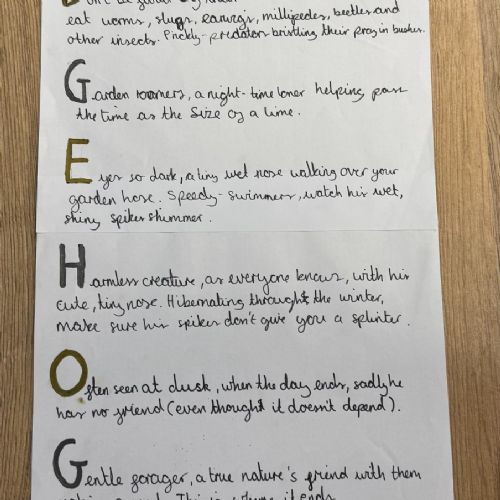 eat worms, slugs, earwigs, millipedes, beetles and
other insects. Prickly-predators bristling their prey in bushes.
Garden roamers, a night-time loner helping pass
the time as the size of a lime.
Eyes so dark, a tiny wet nose walking over your
garden hose. Speedy-swimmers, watch his wet,
shiny spikes shimmer.
Harmless creature, as everyone knows, with his
cute, tiny nose. Hibernating through the winter,
make sure his spikes don't give you a splinter.
Often seen at dusk, when the day ends, sadly he
has no friend (even thought it doesn't depend).
Gentle forager, a true nature's friend with them